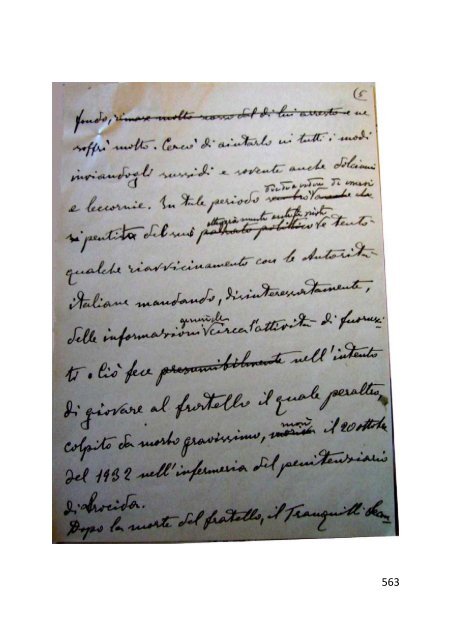 (5
fondo, rimase molto scosso del di lui arresto e ne
soffrì molto. Cercò di aiutarlo in tutti i modi
inviandogli sussidi e sovente anche dolciumi
e leccornie. In tale periodo dette a vedere di essersi
pentito del suo atteggiamento antifascista passato politico e tentò
qualche riavvicinamento con le Autorità
italiane mandando, disinteressatamente,
delle informazioni generiche circa l'attività di fuorusci-
ti. Ciò fece presumibilmente nell'intento
di giovare al fratello il quale peraltro,
colpito da morbo gravissimo, morì il 20 ottobre
del 1932 nell'infermeria del penitenziario
di Procida.
Dopo la morte del fratello, il Tranquilli
563